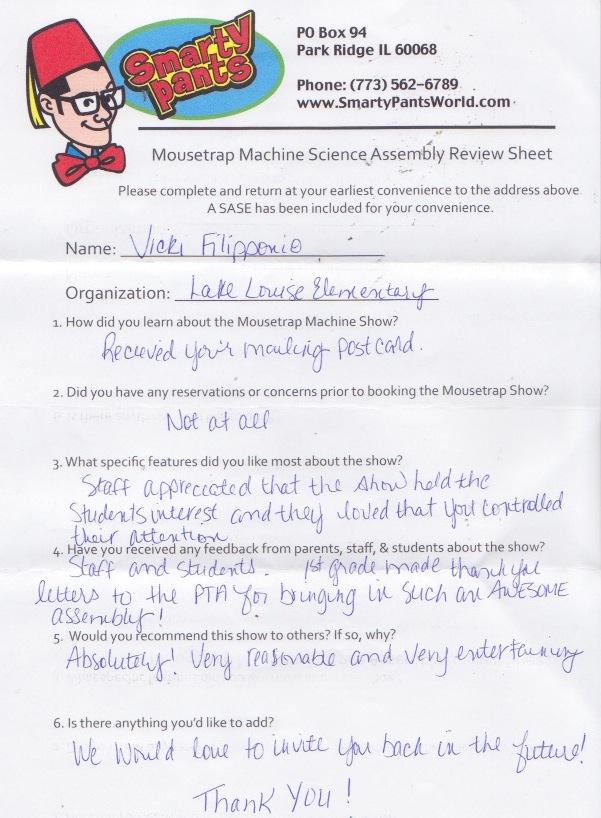 Smarty
Pants
PO Box 94
Park Ridge IL 60068
Phone: (773) 562-6789
www.SmartyPantsWorld.com
Mousetrap Machine Science Assembly Review Sheet
Please complete and return at your earliest convenience to the address above.
A SASE has been included for your convenience.
Name: Vicki Filipponio
Organization: Lake Louise Elementary
1. How did you learn about the Mousetrap Machine Show?
Recieved your mailing post card.
2. Did you have any reservations or concerns prior to booking the Mousetrap Show?
Not at all
3. What specific features did you like most about the show?
Staff appreciated that the show held the
Students interest and they loved that you controlled
their attention
4. Have you received any feedback from parents, staff, & students about the show?
Staff and Students. 1st grade made thank you
letters to the PTA for bringing in such an AWESOME
assembly!
5. Would you recommend this show to others? If so, why?
Absolutely! Very reasonable and very entertaining
6. Is there anything you'd like to add?
We would love to invite you back in the future!
Thank You!